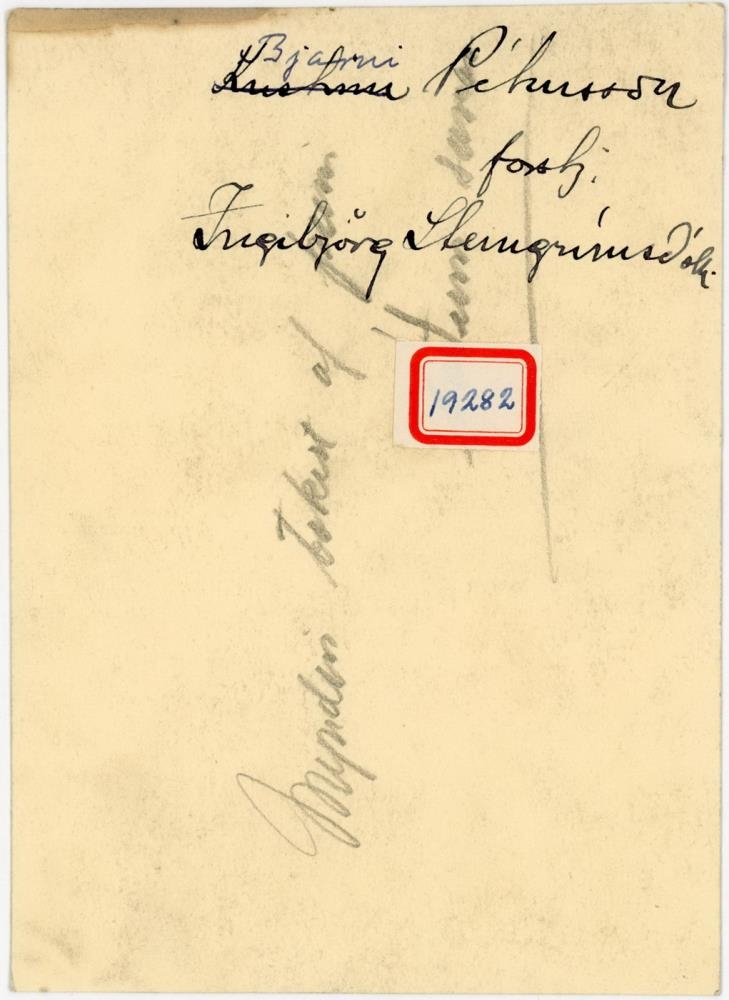 Bjarni
Pétursson
forstj.
Ingibjörg Steingrímsdótt.
19282
Myndin tekin af